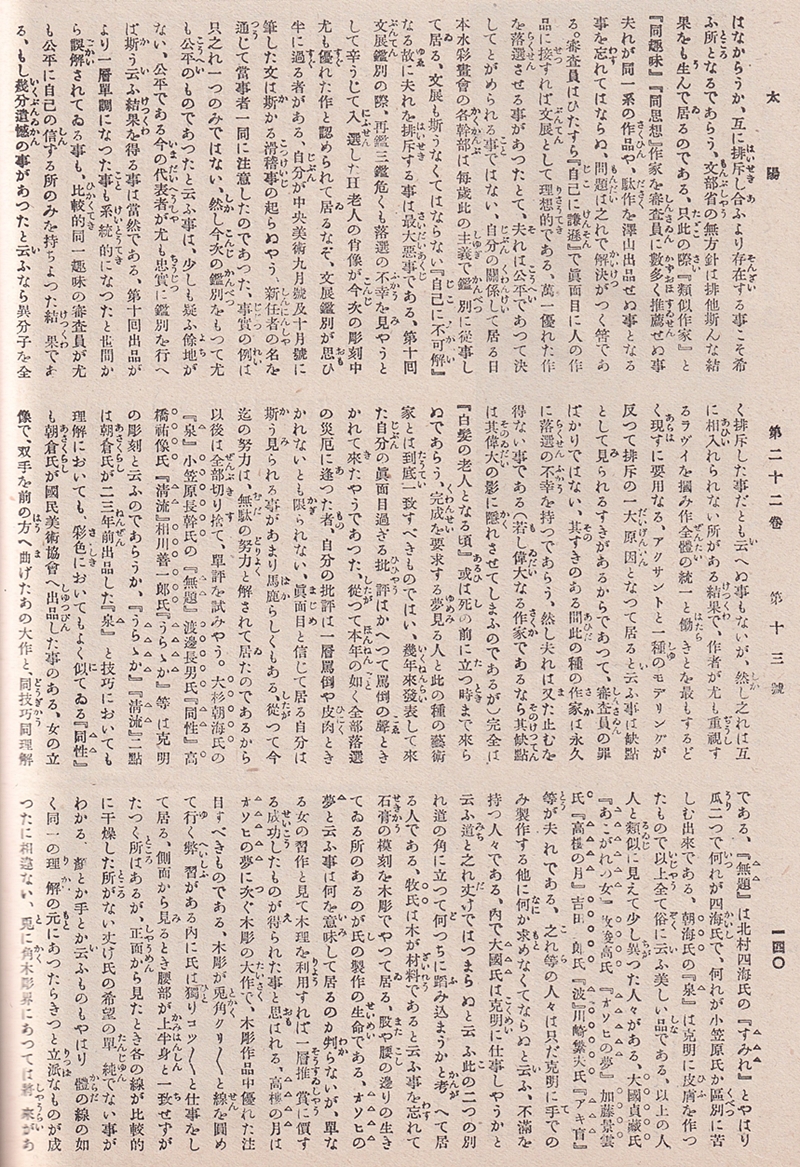 太陽
第二十二卷 第十三號
一四〇
はなからうか、互に排斥し合ふより存在する事こそ希
ふ所となるであらう、文部省の無方針は排他斯んな結
果をも生んで居るのである、只此の際『類似作家』と
『同趣味』『同思想』作家を審査員に數多く推薦せぬ事
夫れが同一系の作品や、駄作を澤山出品せぬ事となる
事を忘れてはならぬ、問題は之れで解決がつく筈であ
る。審査員はひたすら『自己に謙遜』で眞面目に人の作
品に接すれば文展として理想的である、萬一優れた作
を落選させる事があつたとて、夫れは公平であつて決
してとがめられる事ではない、自分の關係して居る日
本水彩畫會の各幹部は每歳此の主義で鑑別に從事し
て居る、文展も斯うなくてはならない『自己に不可解』
なる故に夫れを排斥する事は最大惡事である、第十回
文展鑑別の際、再鑑三鑑危くも落選の不幸を見やうと
して辛うじて入選したH老人の肖像が今次の彫刻中
尤も優れた作と認められて居るなぞ、文展鑑別が思ひ
半に過る者がある、自分が中央美術九月號及十月號に
筆した文は斯かる滑稽事の起らぬやう、新任者の名を
通じて當事者一同に注意したのであつた、事實の例は
只之れ一つのみではない、然し今次の鑑別をもつて尤
も公平のものであつたと云ふ事は、少しも疑ふ餘地が
ない、公平である今の代表者が尤も忠實に鑑別を行へ
ば斯う云ふ結果を得る事は當然である、第十回出品が
より一層單調になつた事も系統的になつたと世間か
ら誤解されてゐる事も、比較的同一趣味の審査員が尤
も公平に自己の信ずる所のみを持ちよつた結果であ
る、もし幾分遺憾の事があつたと云ふなら異分子を全
く排斥した事だとも云へぬ事もないが、然し之れは互
に相入れられない所がある結果で、作者が尤も重視す
るラヴイを摑み作全體の統一と働きとを最もするど
く現すに要用なる、アクサントと一種のモデリングが
反つて排斥の一大原因となつて居ると云ふ事は缺點
として見られるすきがあるからであつて、審査員の罪
ばかりではない、其すきのある間此の種の作家は永久
に落選の不幸を持つであらう、然し夫れは又た止むを
得ない事である(若し偉大なる作家であるなら其缺點
は其偉大の影に隱れさせてしまふのであるが)完全は
『白髮の老人となる頃』或は死の前に立つ時まで來ら
ぬであらう、完成を要求する夢見る人と此の種の藝術
家とは到底一致すべきものではい、幾年來發表して來
た自分の眞面目過ぎる批評はかへつて罵倒の聲とき
かれて來たやうであつた、從つて本年の如く全部落選
の災厄に逢つた者、自分の批評は一層罵倒や皮肉とき
かれないとも限られない、眞面目と信じて居る自分は
斯う見られる事があまり馬鹿らしくもある、從つて今
迄の努力は、無駄の努力と解されて居たのであるから
以後は全部切り捨て、單評を試みやう。大杉朝海氏の
『泉』小笠原長幹氏の『無題』渡邊長男氏『同性』高
橋祐像氏『清流』相川善一郎氏『うらゝか』等は克明
の彫刻と云ふのであらうか、『うらゝか』『清流』二點
は朝倉氏が二三年前出品した『泉』と技巧においても
理解においても、彩色においてもよく似てゐる『同性』
も朝倉氏が國民美術協會へ出品した事のある、女の立
像で、双手を前の方へ曲げたあの大作と、同技巧同理解
である、『無題』は北村四海氏の『すみれ』とやはり
瓜二つで何れが四海氏で、何れが小笠原氏か區別に苦
しむ出來である、朝海氏の『泉』は克明に皮膚を作つ
たもので以上全て俗に云ふ美しい品である、以上の人
人と類似に見えて少し異つた人々がある、大國貞藏氏
『あこがれの女』牧俊高氏『オソヒの夢』加藤景雲
氏『高樓の月』吉田 郎氏『波』川崎繁夫氏『アキ盲』
等が夫れである、之れ等の人々は只だ克明に手での
み製作する他に何か求めなくてならぬと云ふ、不滿を
持つ人々である、內で大國氏は克明に仕事しやうかと
云ふ道と之れ丈けではつまらぬと云ふ此の二つの別
れ道の角に立つて何つちに踏み込まうかと考へて居
る人である、牧氏は木が材料であると云ふ事を忘れて
石膏の模刻を木彫でやつて居る、股や腰の邊りの生き
てゐる所のあるのが氏の製作の生命である、オソヒの
夢と云ふ事は何を意味して居るのか判らないが、單な
る女の習作と見て木理を利用すれば一層推賞に價す
る成功したものが得られた事と思はれる、高樓の月は
オソヒの夢に次ぐ木彫の大作で、木彫作品中優れた注
目すべきものである、木彫が兎角クリ〱と線を圓め
て行く弊習がある內に氏は獨りコツ〱と仕事をし
て居る、側面から見るとき腰部が上半身と一致せずが
たつく所はあるが、正面から見たとき各の線が比較的
に干燥した所がない丈け氏の希望の單純でない事が
わかる、顏とか手とか云ふものもやはり體の線の如
く同一の理解の元にあつたらきつと立派なものが成
つたに相違ない、兎に角木彫界にあつては將來があ